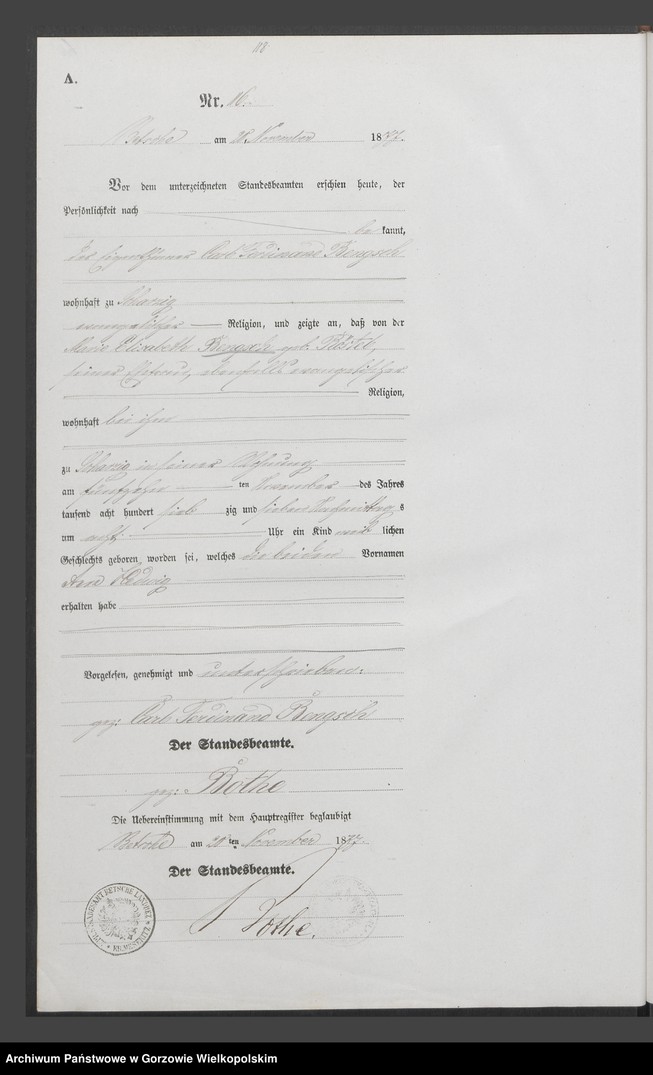 118
A.
Nr. 16.
Betsche am 20. November 1877.
Vor dem unterzeichneten Standesbeamten erschien heute, der
Persönlichkeit nach
be kannt,
der Eigenthümer Carl Ferdinand Bengsch
wohnhaft zu Scharzig
evangelischer Religion, und zeigte an, daß von der
Marie Elisabeth Bengsch geb.
seiner Ehefrau, ebenfalls evangelischer
Religion,
wohnhaft bei ihm
zu Scharzig in seiner Wohnung
am fünfzehn ten November des Jahres
tausend acht hundert sieb zig und sieben Nachmittag s
um acht Uhr ein Kind weib lichen
Geschlechts geboren worden sei, welches die beiden Vornamen
Hedwig
erhalten habe
Vorgelesen, genehmigt und unterschrieben:
gez: Carl Ferdinand Bengsch
Der Standesbeamte.
gez: Bothe
Die Uebereinstimmung mit dem Hauptregister beglaubigt
Betsche am 20 ten November 1877.
Der Standesbeamte.
Bothe.
Archiwum Państwowe w Gorzowie Wielkopolskim